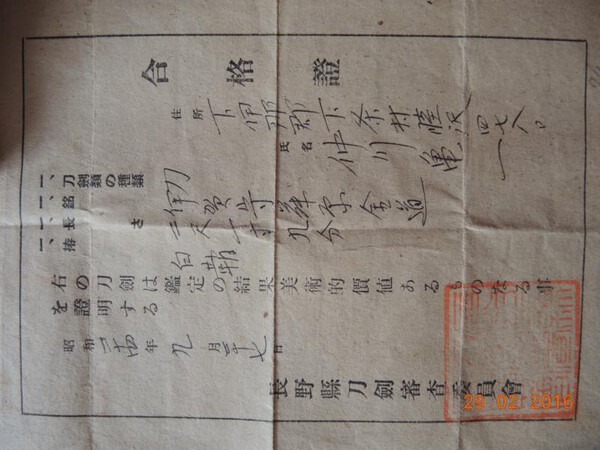 合格證
住所 下伊那郡下条村睦沢四七八
氏名 仲川亀
一、刀劍類の種類 刀
一、銘 伊賀守藤原金道
一、長さ 二尺一寸九分
一、拵 白鞘
右の刀劍は鑑定の結果美術的價値あるものなる事
を證明する
昭和二十四年九月二十七日
長野縣刀劍審査委員會
29 02 2016